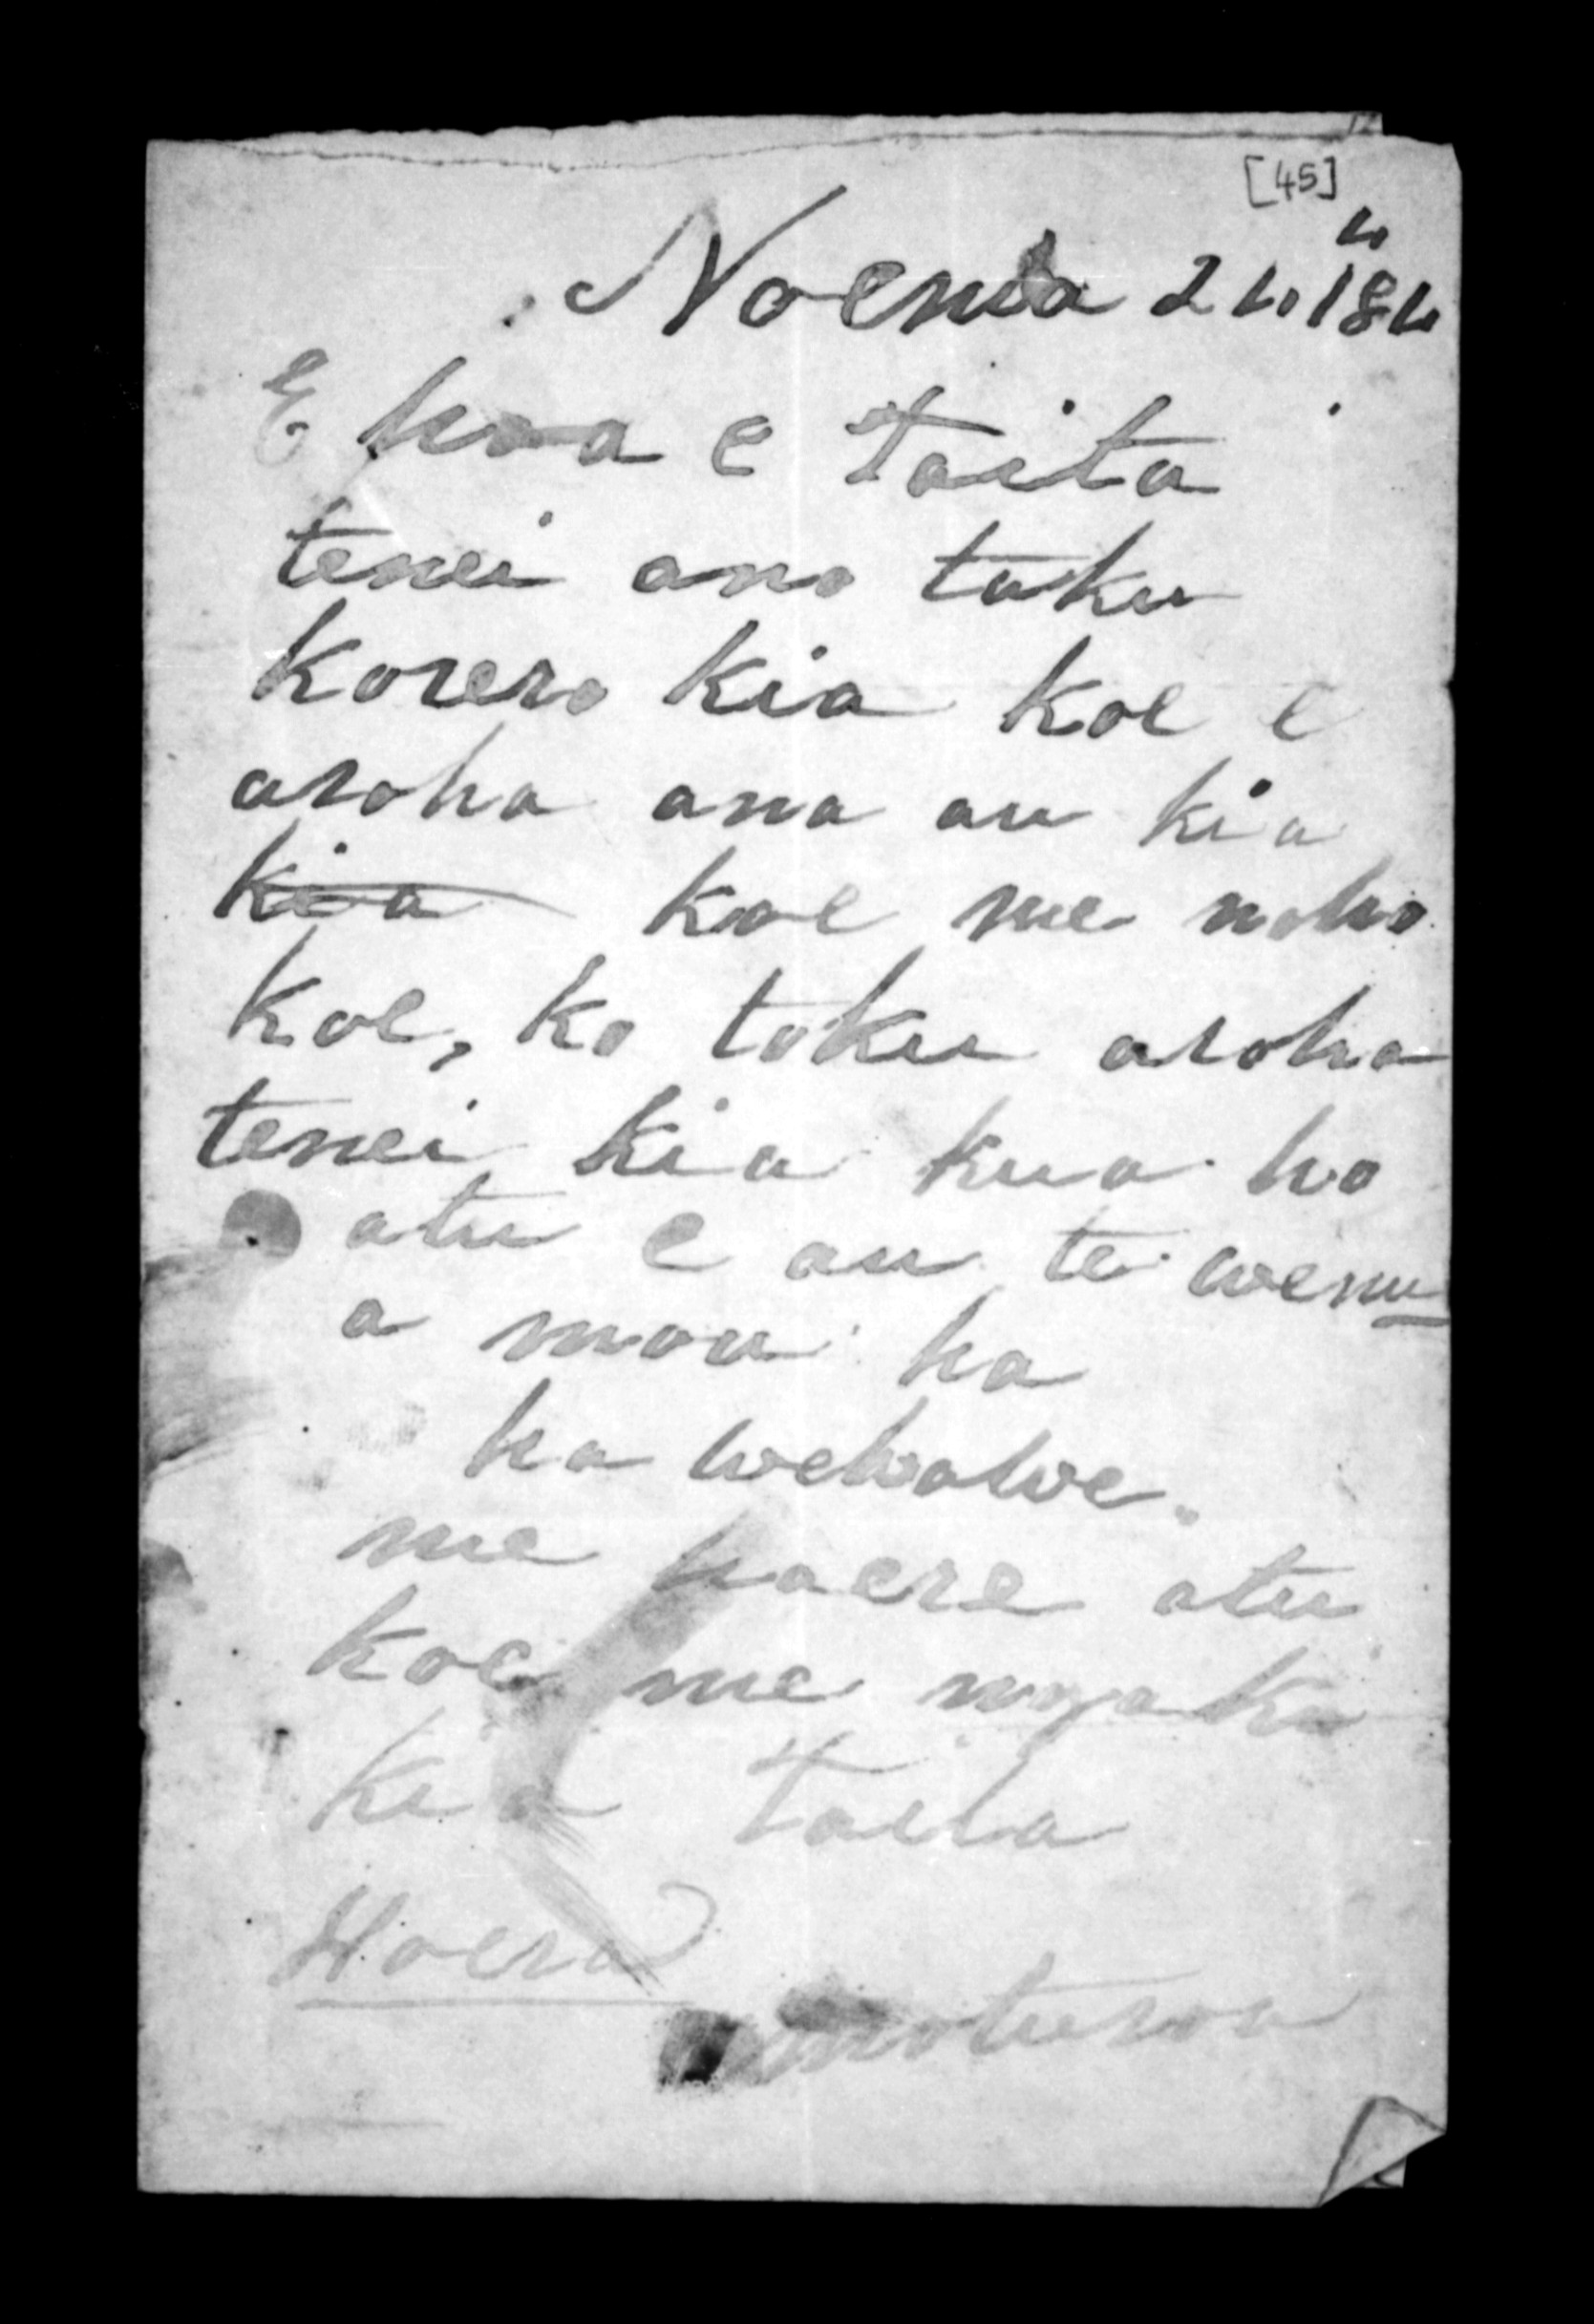 [45]
4
Noema 24 184
E hoa e Taita
tenei ano taku
korero kia koe e
aroha ana au kia
kia koe me noho
koe, ko toku aroha
tenei kia kua ho
atu e au te wenu
a mou ha
ha wehawe.
me haere atu
koe me ngaki
kia Taita
Hoera